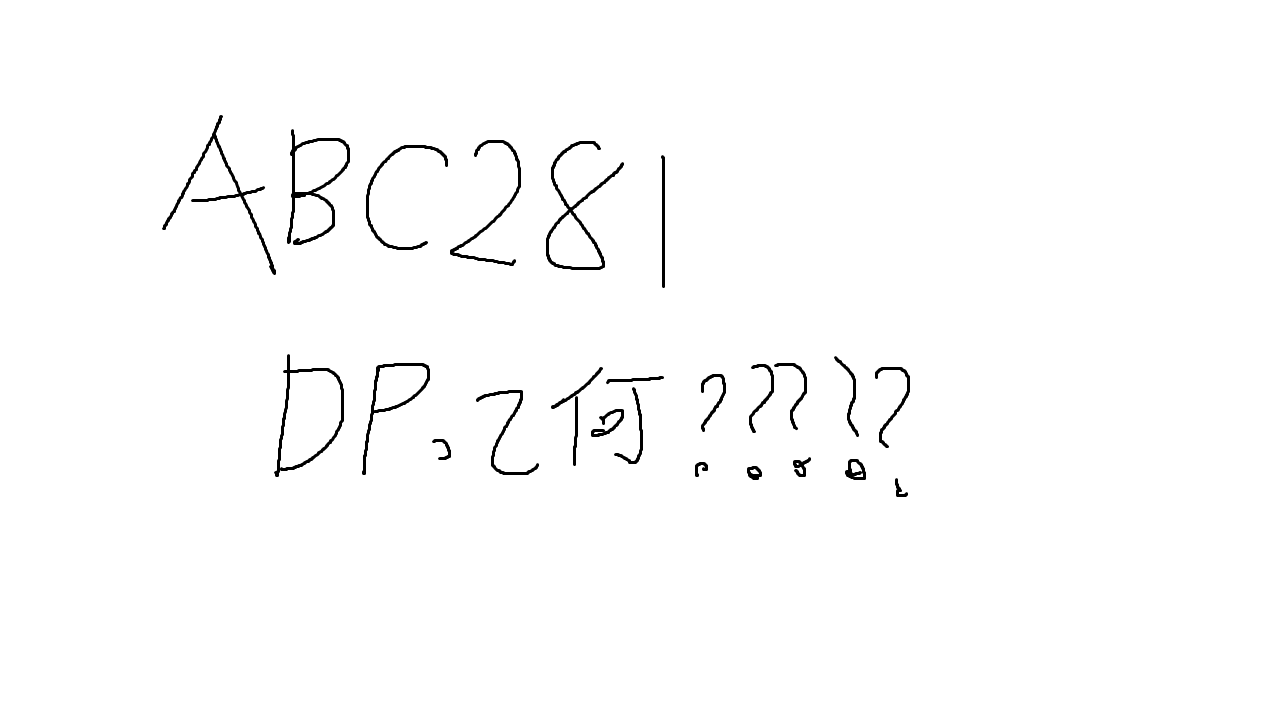 ABC281
DPって何?????